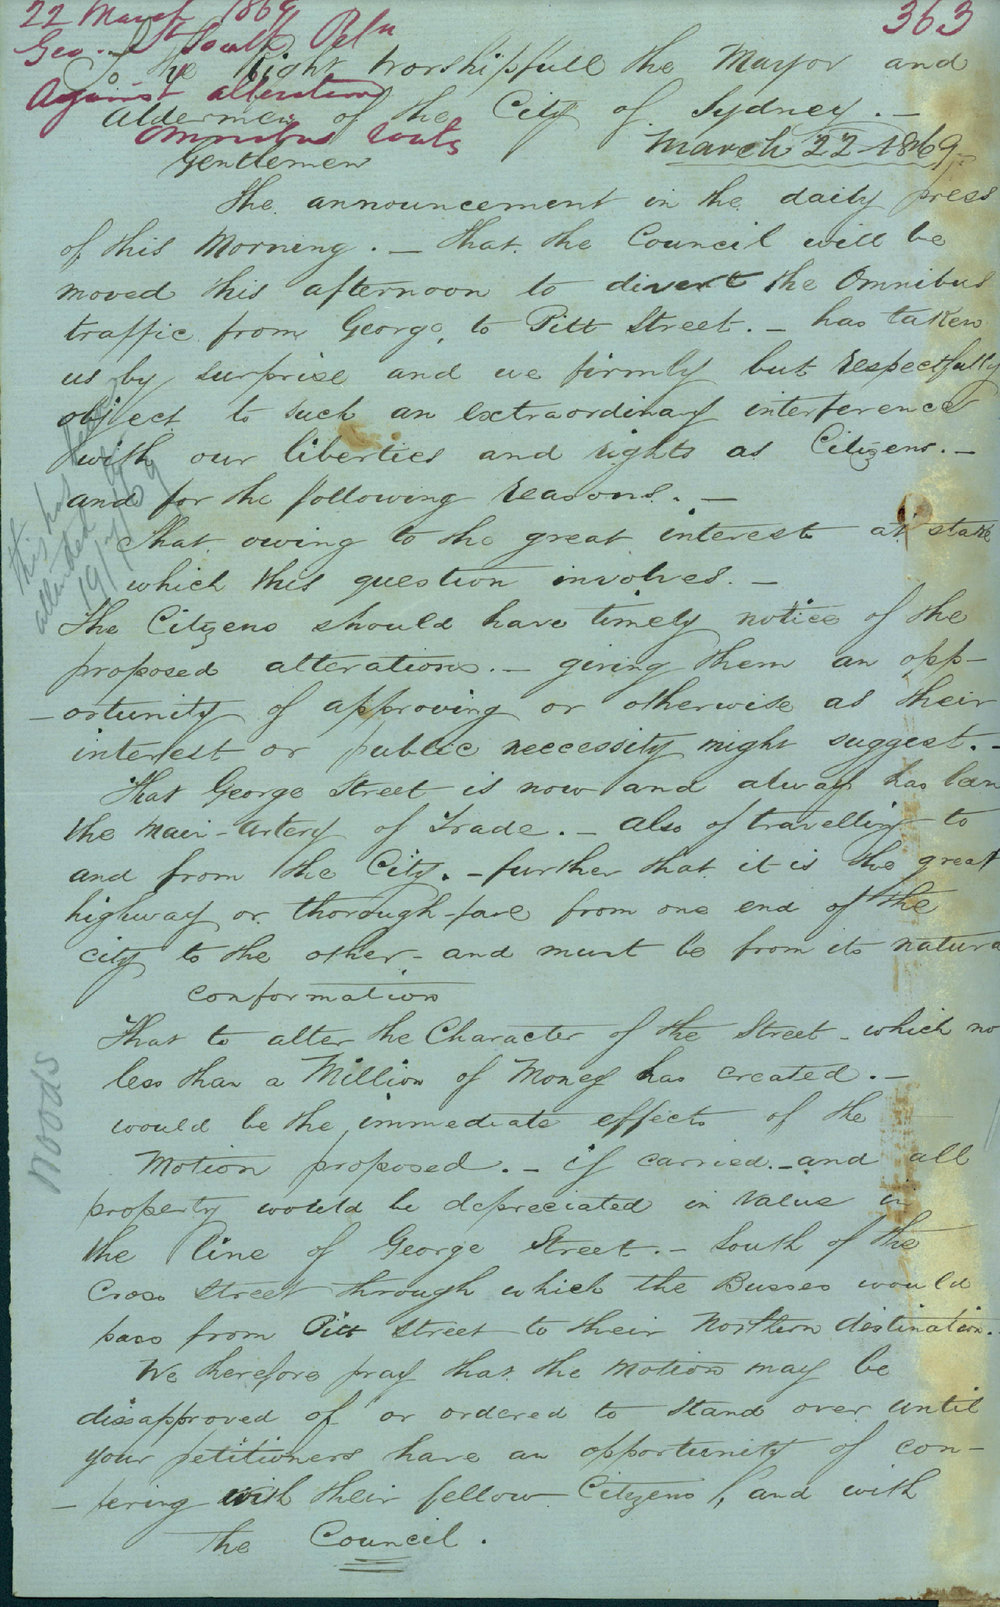 22 March 1869
363
Geo. St South Petn
Against alteration
Omnibus routs
To the Right Worshipfull the Mayor and
Aldermen of the City of Sydney. —
March 22 1869.
Gentlemen
The announcement in the daily press
of this Morning. — that the Council will be
moved this afternoon to divert the Omnibus
traffic from George, to Pitt Street. — has taken
us by surprise and we firmly but respectfully
object to such an extraordinary interference
with our liberties and rights as Citizens. —
and for the following reasons. —
That owing to the great interest at stake
which this question involves. —
The Citizens should have timely notice of the
proposed alterations. — giving them an opp-
-ortunity of approving or otherwise as their
interest or public neccessity might suggest. —
That George Street is now and always has been
the main-artery of Trade. — also of travelling to
and from the City. — further that it is the great
highway or thorough-fare from one end of the
city to the other — and must be from its natural
conformation
That to alter the Character of the Street — which no
less than a Million of Money has created. —
would be the immediate effects of the
Motion proposed. — if carried. — and all
property would be depreciated in value in
the line of George Street. — South of the
Cross Street through which the Busses would
pass from Pitt Street to their Northern distination.
We therefore pray that the Motion may be
dissapproved of or ordered to stand over until
your petitioners have an opportunity of con-
-fering with their fellow Citizens, and with
the Council.
this has been
attended to
19/7/69
Woods